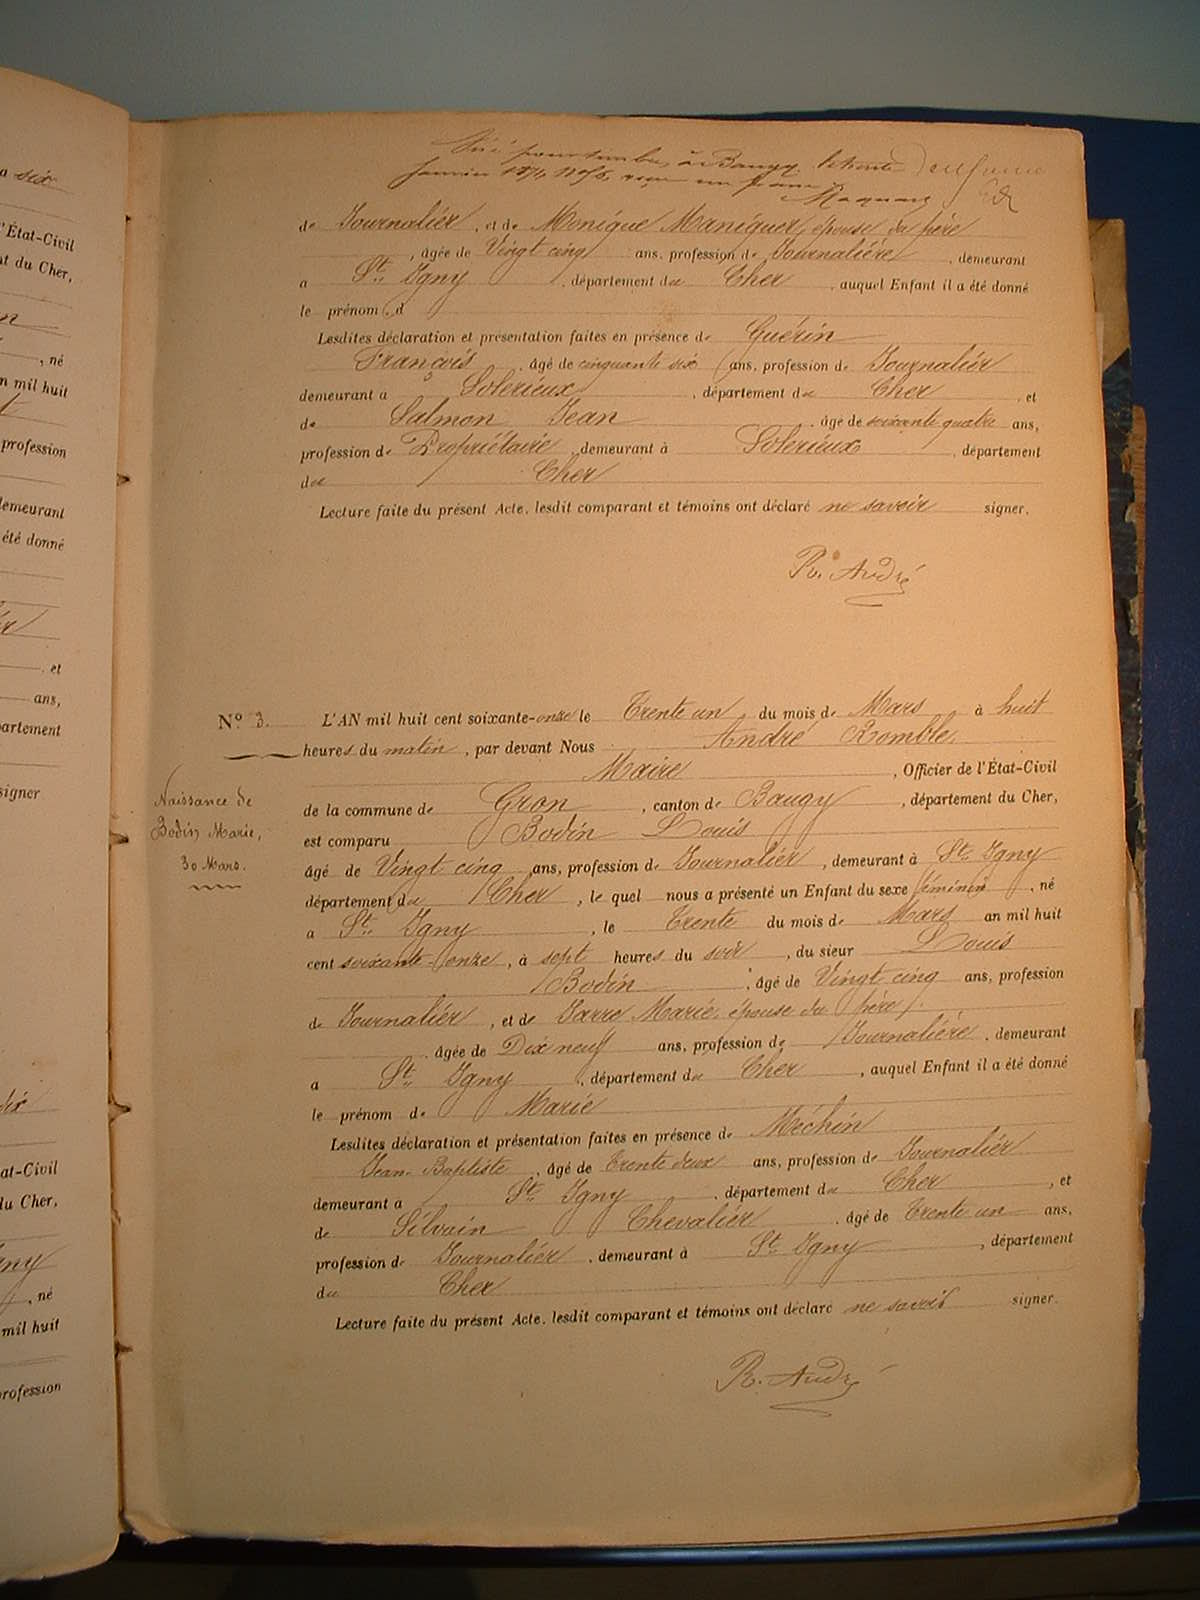 a six
l'État-Civil
nt du Cher,
, né
n mil huit
profession
demeurant
été donné
et
ans,
partement
signer
État-Civil
du Cher,
, né
mil huit
profession
Visé pour timbre à Baugy le trente
Janvier 1874
de Journaliér, et de Monique Maniguer, épouse du pére
, âgée de Vingt cinq ans, profession de Journaliére, demeurant
a St. Igny, département du Cher, auquel Enfant il a été donné
le prénom d
Lesdites déclaration et présentation faites en présence de Guérin
François, âgé de cinquante six ans, profession de Journaliér
demeurant a Solerieux, département du Cher, et
de Salmon Jean, âgé de soixante quatre ans,
profession de Propriétaire, demeurant à Solerieux, département
du Cher
Lecture faite du présent Acte, lesdit comparant et témoins ont déclaré ne savoir signer.
R. André
N° 3. L'AN mil huit cent soixante-onze le Trente un du mois de Mars à huit
heures du matin, par devant Nous André Romble,
Maire, Officier de l'État-Civil
de la commune de Gron, canton de Baugy, département du Cher,
Naissance de
Bodin Marie,
30 Mars.
est comparu Bodin Louis
âgé de Vingt cinq ans, profession de Journaliér, demeurant à St. Igny
département du Cher, le quel nous a présenté un Enfant du sexe féminin, né
a St. Igny, le Trente du mois de Mars an mil huit
cent soixante-onze, à sept heures du soir, du sieur Louis
Bodin, âgé de Vingt cinq ans, profession
de Journaliér, et de Jarre Marie, épouse du pére,
âgée de Dix neuf ans, profession de Journaliére, demeurant
a St. Igny, département du Cher, auquel Enfant il a été donné
le prénom de Marie
Lesdites déclaration et présentation faites en présence de Méchin
Jean-Baptiste, âgé de Trente deux ans, profession de Journaliér
demeurant a St. Igny, département du Cher, et
de Silvain Chevaliér, âgé de Trente un ans,
profession de Journaliér, demeurant à St. Igny, département
du Cher
Lecture faite du présent Acte, lesdit comparant et témoins ont déclaré ne savoir signer.
R. André